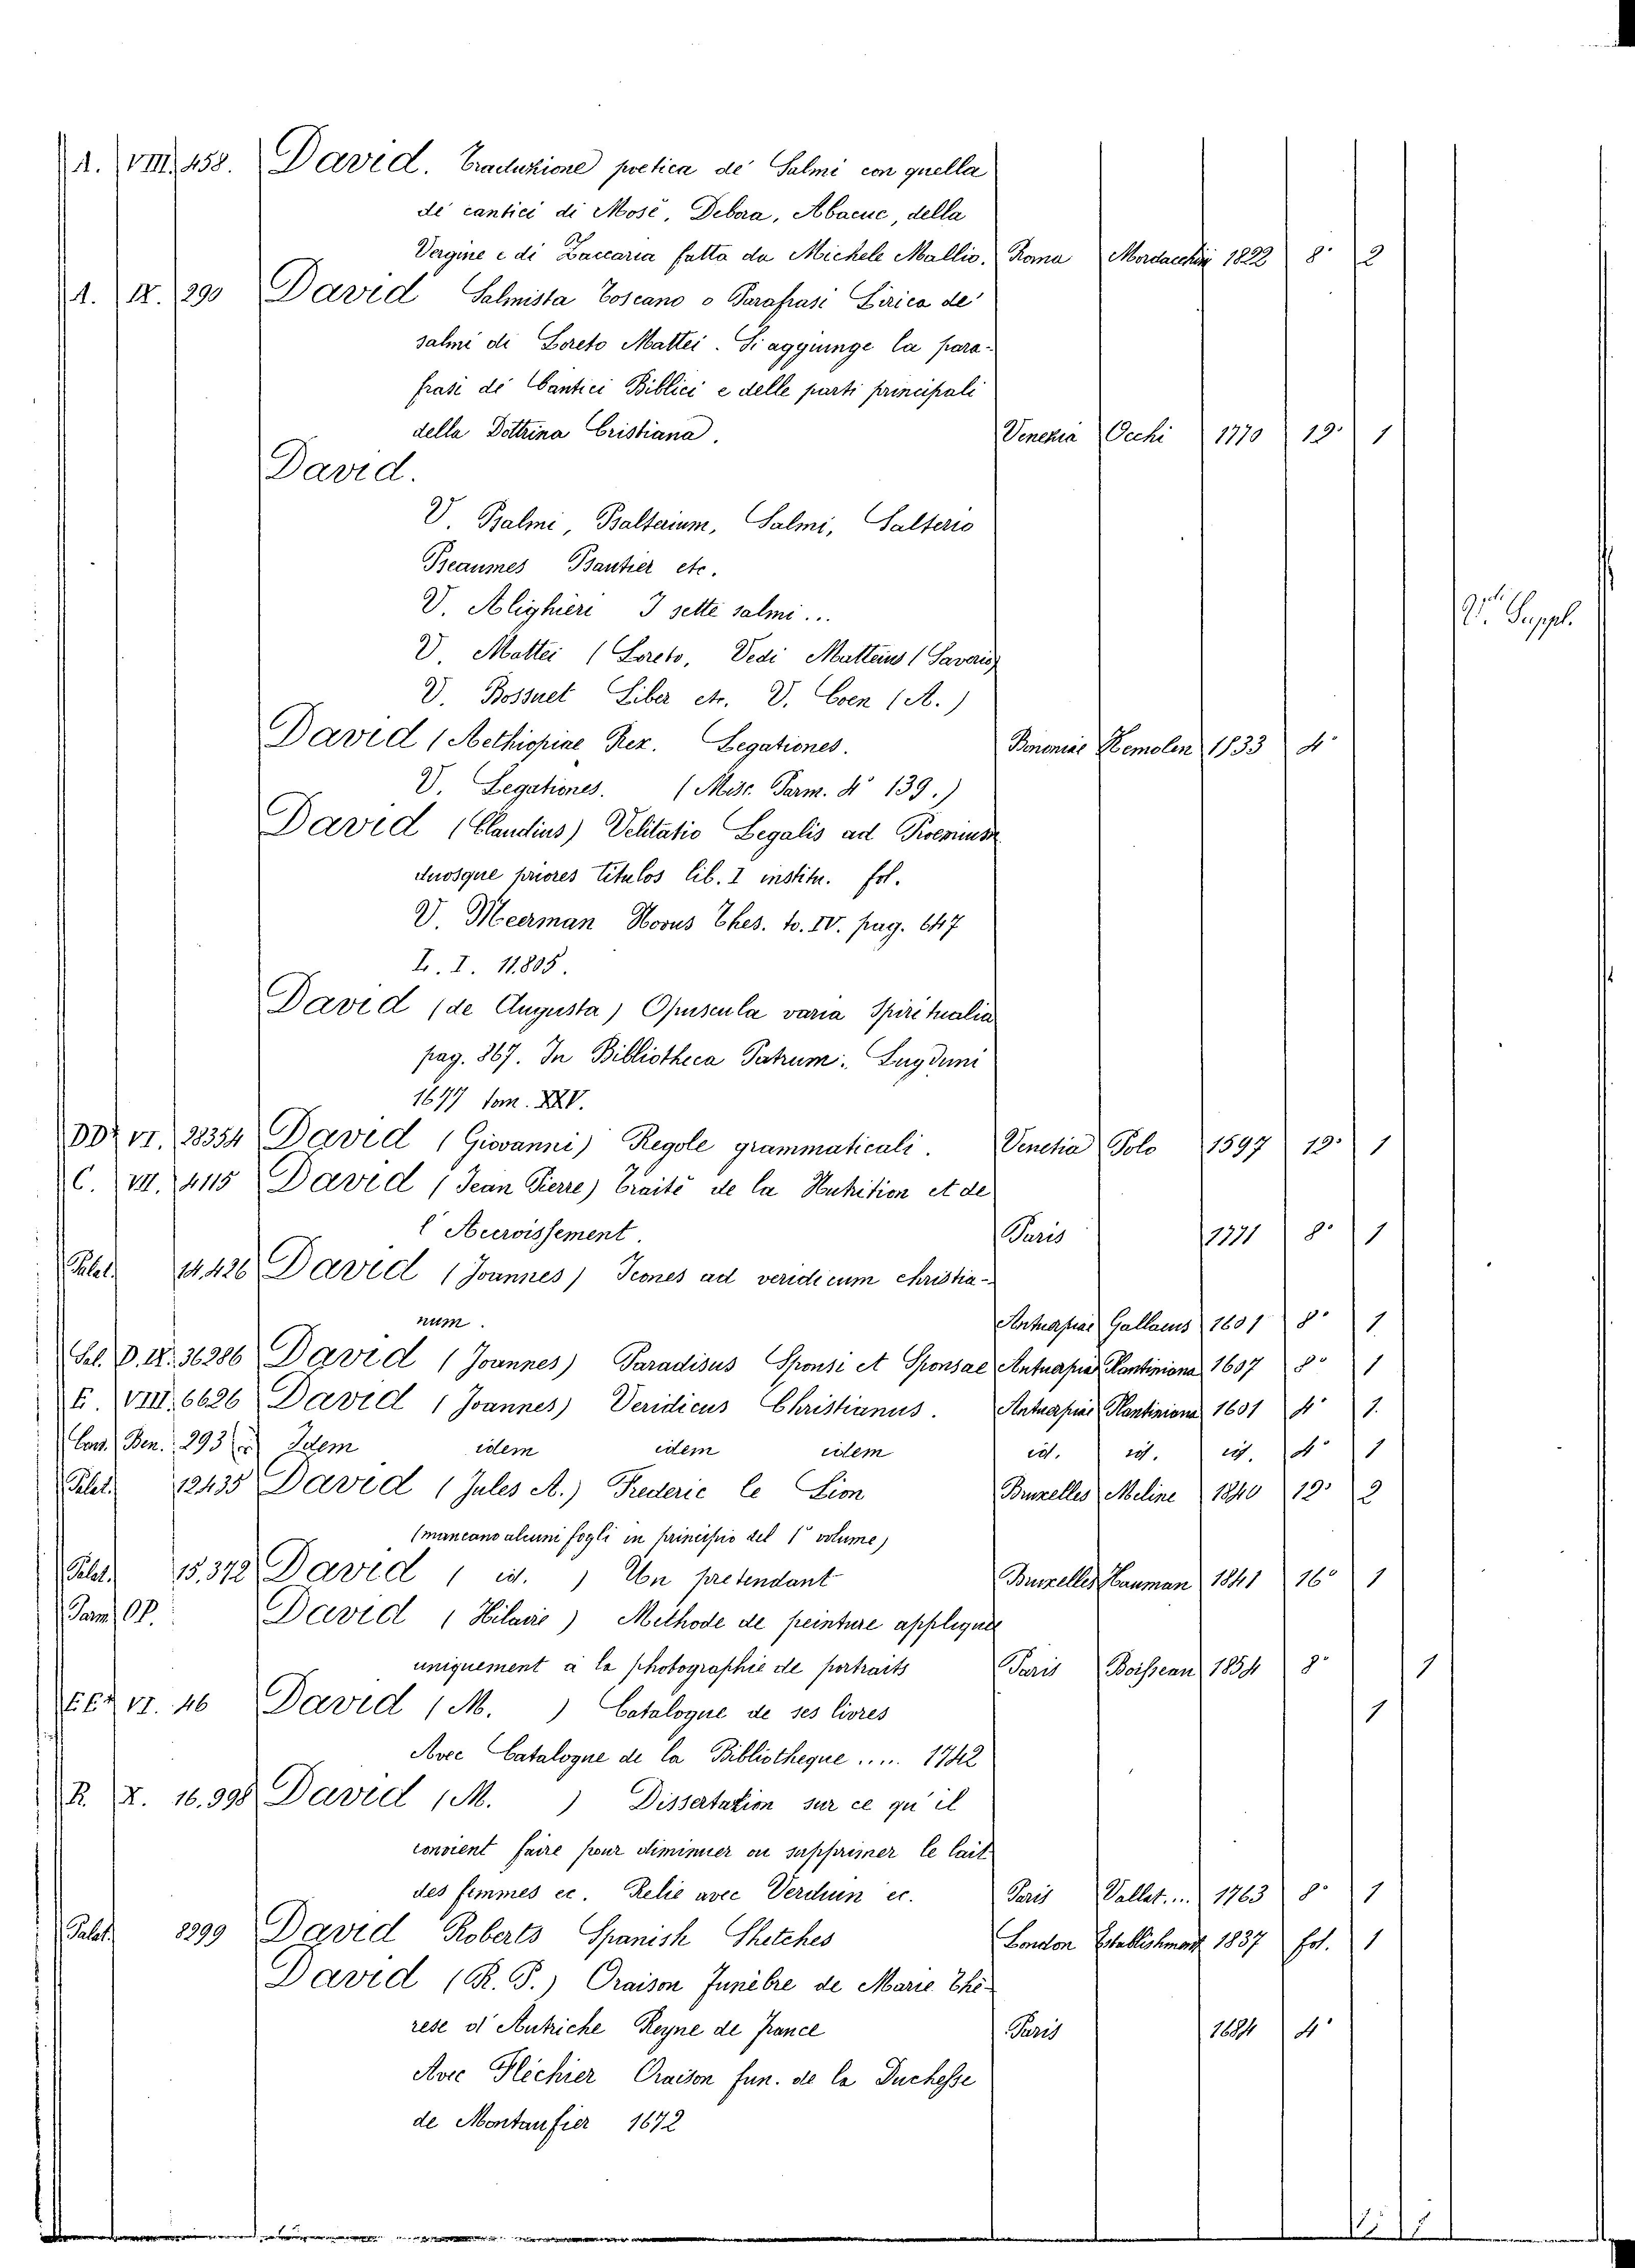 A. VIII. 458. David. Traduzione poetica de' Salmi con quella
di cantici di Mosè, Debora, Abacuc, della
Vergine e di Zaccaria fatta da Michele Mallio. Roma Mordacchini 1822 8° 2
A. IX. 290 David Salmista Toscano o Parafrasi Lirica de'
salmi di Loreto Mattei. Si aggiunge la para-
frasi de' Cantici Biblici e delle parti principali
della Dottrina Cristiana. Venezia Occhi 1770 12° 1
David.
V. Psalmi, Psalterium, Salmi, Salterio
Pseaumes Psautier etc.
V. Alighieri I sette salmi... V. Suppl.
V. Mattei (Loreto, Vedi Matteius (Saverio)
V. Bossuet Liber etc. V. Coen (A.)
David (Aethiopiae Rex. Legationes. Bononiae Kemolen 1533 4°
V. Legationes. (Misc. Parm. 4° 139.)
David (Claudius) Velitatio Legalis ad Proemium
duosque priores titulos lib. I institu. fol.
V. Meerman Novus Thes. to. IV. pag. 647
L. I. 11.805.
David (de Augusta) Opuscula varia Spiritualia
pag. 867. In Bibliotheca Patrum. Lugduni
1677 tom. XXV.
DD* VI. 28354 David (Giovanni) Regole grammaticali. Venetia Polo 1597 12° 1
C. VII. 4115 David (Jean Pierre) Traité de la Nutrition et de
l'Accroissement. Paris 1771 8° 1
Palat. 14.426 David (Joannes) Icones ad veridicum christia-
num. Antuapiae Gallaeus 1601 8° 1
Sal. D. IX. 36286 David (Joannes) Paradisus Sponsi et Sponsae Antuapiae Plantiniana 1607 8° 1
E. VIII. 6626 David (Joannes) Veridicus Christianus. Antuapiae Plantiniana 1601 4° 1.
Conv. Ben. 293 Idem idem idem idem id. id. id. 4° 1
Palat. 12435 David (Jules A.) Frederic le Lion Bruxelles Meline 1840 12° 2
(mancano alcuni fogli in principio del 1° volume)
Palat. 15.372 David ( id. ) Un pretendant Bruxelles Hauman 1841 16° 1
Parm. OP. David (Hilaire) Methode de peinture appliquée
uniquement à la photographie de portraits Paris Boisseau 1854 8° 1
EE* VI. 46 David (M. ) Catalogue de ses livres 1
Avec Catalogue de la Bibliotheque ..... 1742
R. X. 16.998 David (M. ) Dissertation sur ce qu'il
convient faire pour diminuer ou supprimer le lait
des femmes ec. Relie avec Verduin ec. Paris Vallat... 1763 8° 1
Palat. 8299 David Roberts Spanish Shetches London Establishment 1837 fol. 1
David (R. P.) Oraison Funèbre de Marie Thé-
rese d'Autriche Reyne de France Paris 1684 4°
Avec Flechier Oraison fun. de la Duchesse
de Montausier 1672